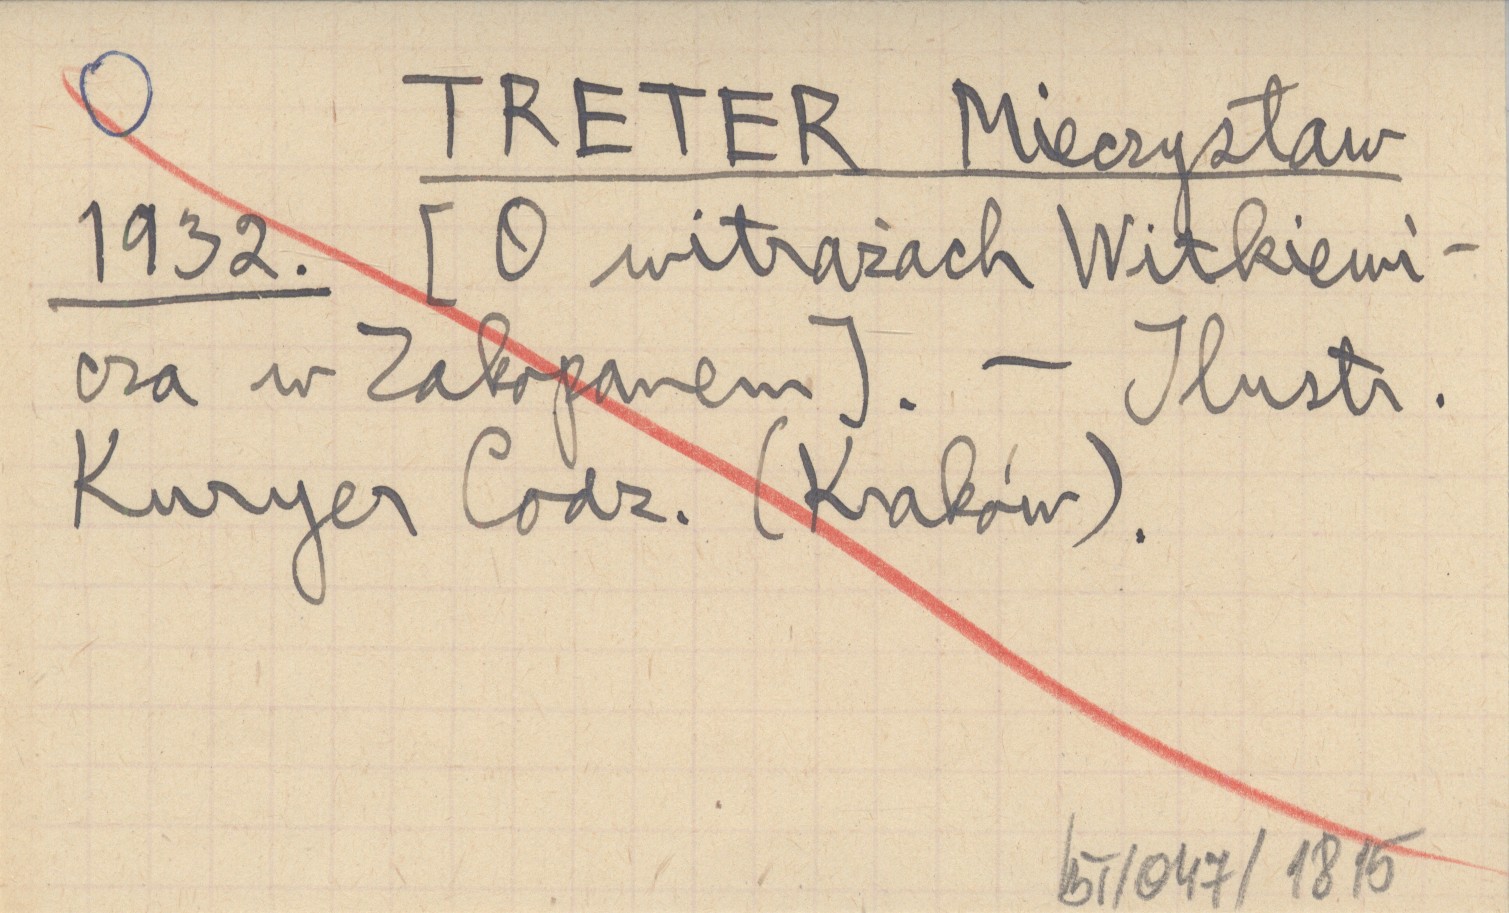 TRETER Mieczysław
1932. [O witrażach Witkiewi-
cza w Zakopanem]. — Ilustr.
Kuryer Codz. (Kraków).
/047/1815